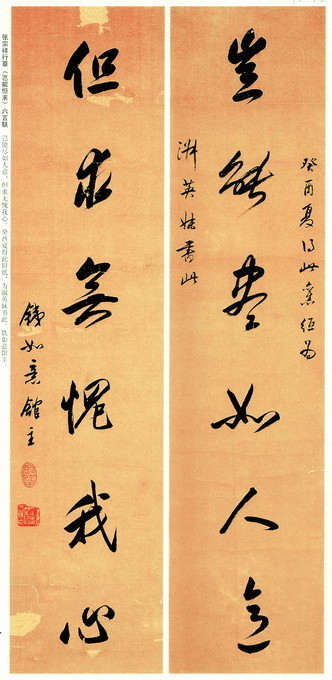 癸酉夏得此舊紙為
豈能盡如人意
淑英妹書此
但求無愧我心
鐵如意館主
张宗祥行草《岂能但求》六言联 岂能尽如人意,但求无愧我心。癸酉夏得此旧纸,为淑英妹书此,铁如意馆主。